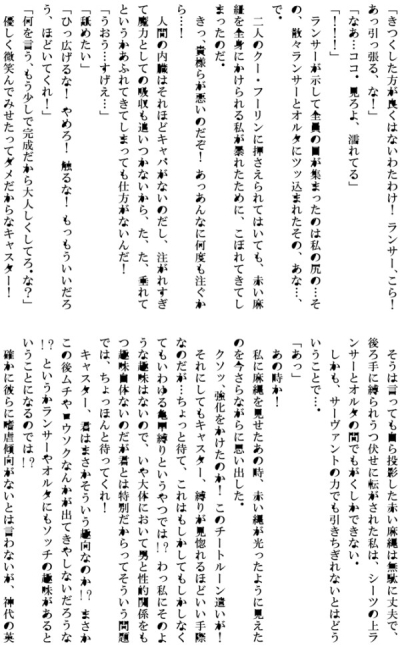 「きつくした方が良くはないわたわけ! ランサー、こら!
あっ引っ張る、な!」
「なぁ…ココ、見ろよ、濡れてる」
「!!!」
ランサーが示して全員の目が集まったのは私の尻の…そ
の、散々ランサーとオルタにツッ込まれたその、あな…、
で。
二人のクー・フーリンに押さえられてはいても、赤い麻
縄を全身にかけられる私が暴れたために、こぼれてきてし
まったのだ。
きっ、貴様らが悪いのだぞ! あっあんなに何度も注ぐか
ら…!
人間の内臓はそれほどキャパがないのだし、注がれすぎ
て魔力としての吸収も追いつかないから、た、た、垂れて
というかあふれてきてしまっても仕方がないんだ!
「うおう…すげえ…」
「舐めたい」
「ひっ広げるな! やめろ! 触るな! もっもういいだろ
う、ほどいてくれ!」
「何を言う、もう少しで完成だから大人しくしてろ。な?」
優しく微笑んでみせたってダメだからなキャスター!
そうは言っても自ら投影した赤い麻縄は無駄に丈夫で、
後ろ手に縛られうつ伏せに転がされた私は、シーツの上ラ
ンサーとオルタの間でもがくしかできない。
しかも、サーヴァントの力でも引きちぎれないとはどう
いうことで…。
「あっ」
あの時か!
私に麻縄を見せたあの時、赤い縄が光ったように見えた
のを今さらながらに思い出した。
クソッ、強化をかけたのか! このチートルーン遣いが!
それにしてもキャスター、縛りが見惚れるほどいい手際
なのだが…ちょっと待て、これはもしかしてもしかしなく
てもいわゆる亀甲縛りというやつでは!? わっ私にそのよ
うな趣味はないので、いや大体において男と性的関係をも
つ趣味自体ないのだが君とは特別だからってそういう問題
では、ちょっほんと待ってくれ!
キャスター、君はまさかそういう趣向なのか!? まさか
この後ムチやロウソクなんかが出てきやしないだろうな
!? というかランサーやオルタにもソッチの趣味があると
いうことになるのでは!?
確かに彼らに嗜虐傾向がないとは言わないが、神代の英